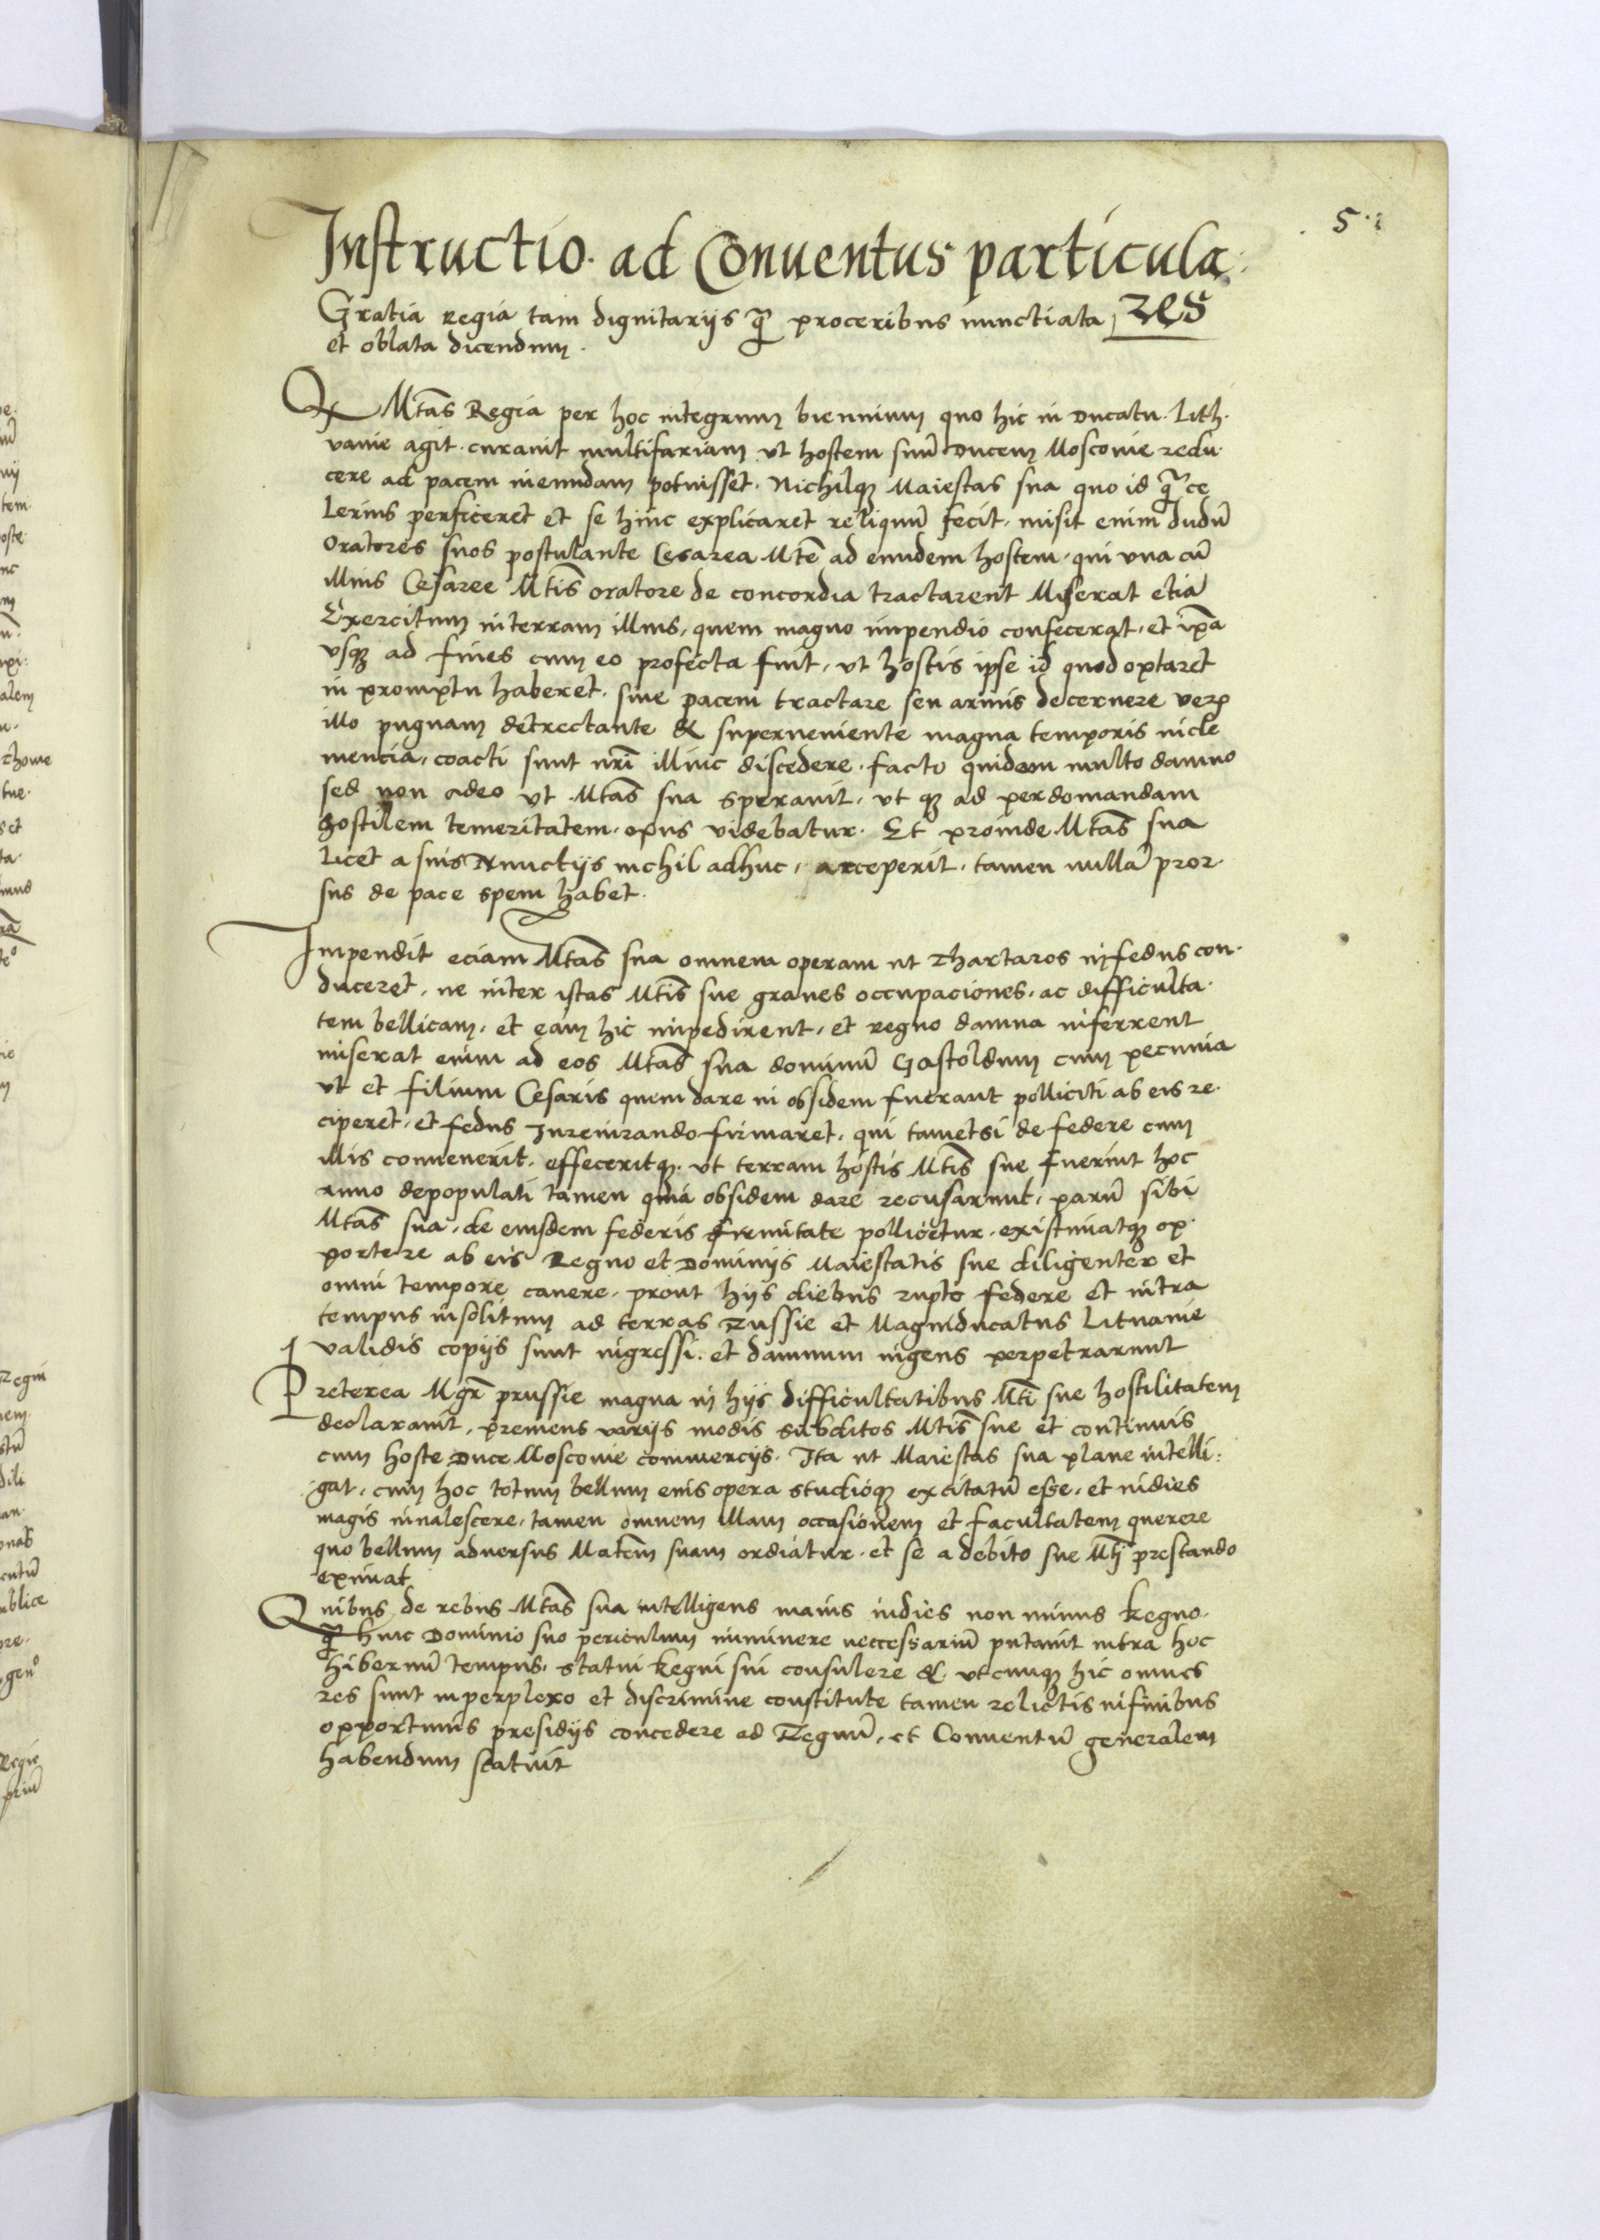 5.
Instructio. ad Conuentus particula:
res
Gratia Regia tam dignitarijs q̃ proceribus nunctiata
et oblata dicendum.
Q Mtas Regia per hoc integrum biennium quo hic in Ducatu. Lith.
vanie agit. curauit multifariam vt hostem suũ Ducem Moscouie redu.
cere ad pacem ineundam potuisset. Nichilq; Maiestas sua quo id q̃ ce
lerius perficeret et se hinc explicaret reliquũ fecit. misit enim dudũ
Oratores suos postulante Cesarea Mte ad eundem hostem. qui vna cũ
illius Cesaree Mtis oratore de concordia tractarent Miserat etiã
Exercitum in terram illius, quem magno impendio confecerat, et ip̃a
vsq; ad fines cum eo profecta fuit, vt hostis ipse id quod optaret
in promptu haberet. siue pacem tractare seu armis decernere verũ
illo pugnam detrectante & superueniente magna temporis incle
mencia, coacti sunt nr̃i illinc discedere. facto quidem multo damno
sed non adeo vt Mtas sua sperauit, vt q; ad perdomandam
hostilem temeritatem. opus videbatur. Et proinde Mtas sua
licet a suis Nunctijs nichil adhuc, acceperit, tamen nullã pror.
sus de pace spem habet.
Impendit eciam Mtas sua omnem operam ut Thartaros in fedus con.
duceret, ne inter istas Mtis sue graues occupaciones, ac difficulta.
tem bellicam, et eam hic impedirent, et regno damna inferrent
miserat enim ad eos Mtas sua dominũ Gastoldum cum pecunia
vt et filium Cesaris quem dare in obsidem fuerant polliciti ab eis re.
ciperet, et fedus Jureiurando firmaret, qui tametsi de federe cum
illis conuenerit. effeceritq;. vt terram hostis Mtis sue fuerint hoc
anno depopulati tamen quia obsidem dare recusarunt, parũ sibi
Mtas sua, de eiusdem federis firmitate pollicetur. existimatq; op.
portere ab eis Regno et Dominijs Maiestatis sue diligenter et
omni tempore cauere, prout hijs diebus rupto federe et intra
tempus insolitum ad terras Russie et Magniducatus Lituanie
validis copijs sunt ingressi. et damnum ingens perpetrarunt
Preterea Mgr̃ prussie magna in hijs difficultatibus Mti sue hostilitatem
declarauit, premens varijs modis subditos Mtis sue et continuis
cum hoste Duce Moscouie commercijs. Ita ut Maiestas sua plane intelli:
gat, cum hoc totum bellum eius opera studioq; excitatũ esse, et indies
magis inualescere, tamen omnem illam occasionem et facultatem querere
quo bellum aduersus Matem suam ordiatur. et se a debito sue Mti prestando
eximat
Quibus de rebus Mtas sua intelligens maius indies non minus Regno.
q̃ huic Dominio suo periculum imminere neccessariũ putauit intra hoc
hibernũ tempus, statui Regni sui consulere &. vtcumq; hic omnes
res sunt in perplexo et discrimine constitute tamen relictis in finibus
opportunis presidijs concedere ad Regnũ, et Conuentũ generalem
habendum statuit